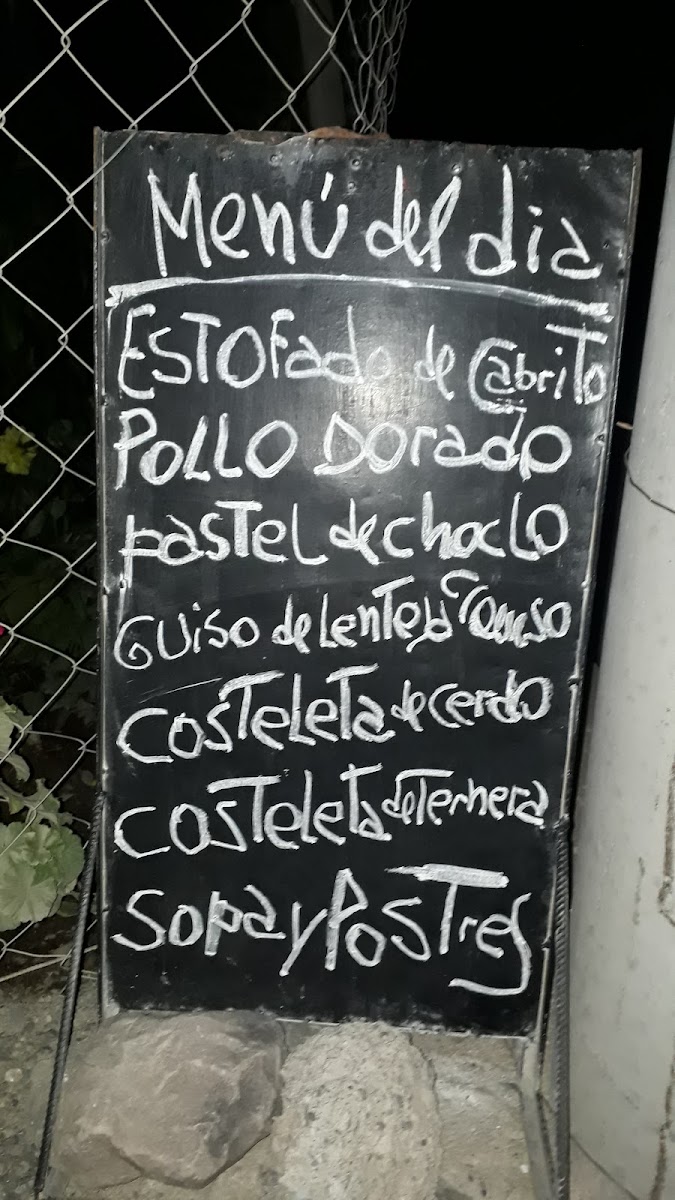 Menú del dia
ESTOFado de CabriTo
POLLO DORado
PasTEL de choclo
GUiso de LenTeja
COSTELETa de cerdo
COSTELETa de Ternera
sopa y POSTres